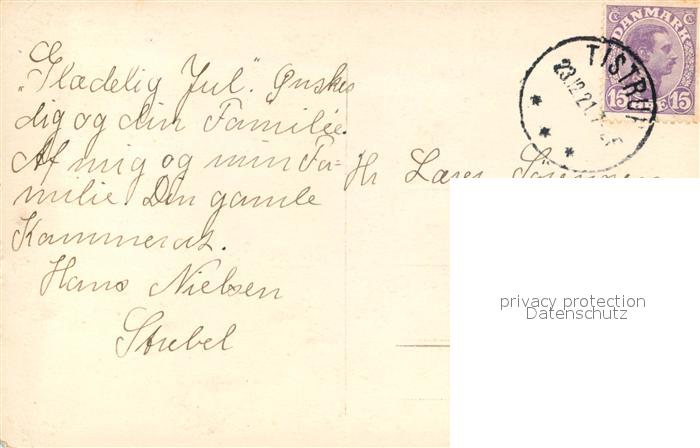 „Glædelig Jul". Ønskes
dig og din Familie.
Af mig og min Fa-
milie. Din gamle
Kammerat.
Hans Nielsen
Hr Lærer
DANMARK
15 15
TISTRUP
23.12.21.
privacy protection
Datenschutz